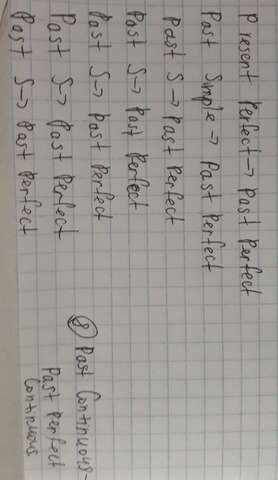 Present Perfect → past Perfect
Past Simple → Past Perfect
Past S → Past Perfect
Past S → Past Perfect
Past S → past Perfect
Past S → Past Perfect
Past S → Past Perfect
⑧ Past Continuous -
Past Perfect
Continuous